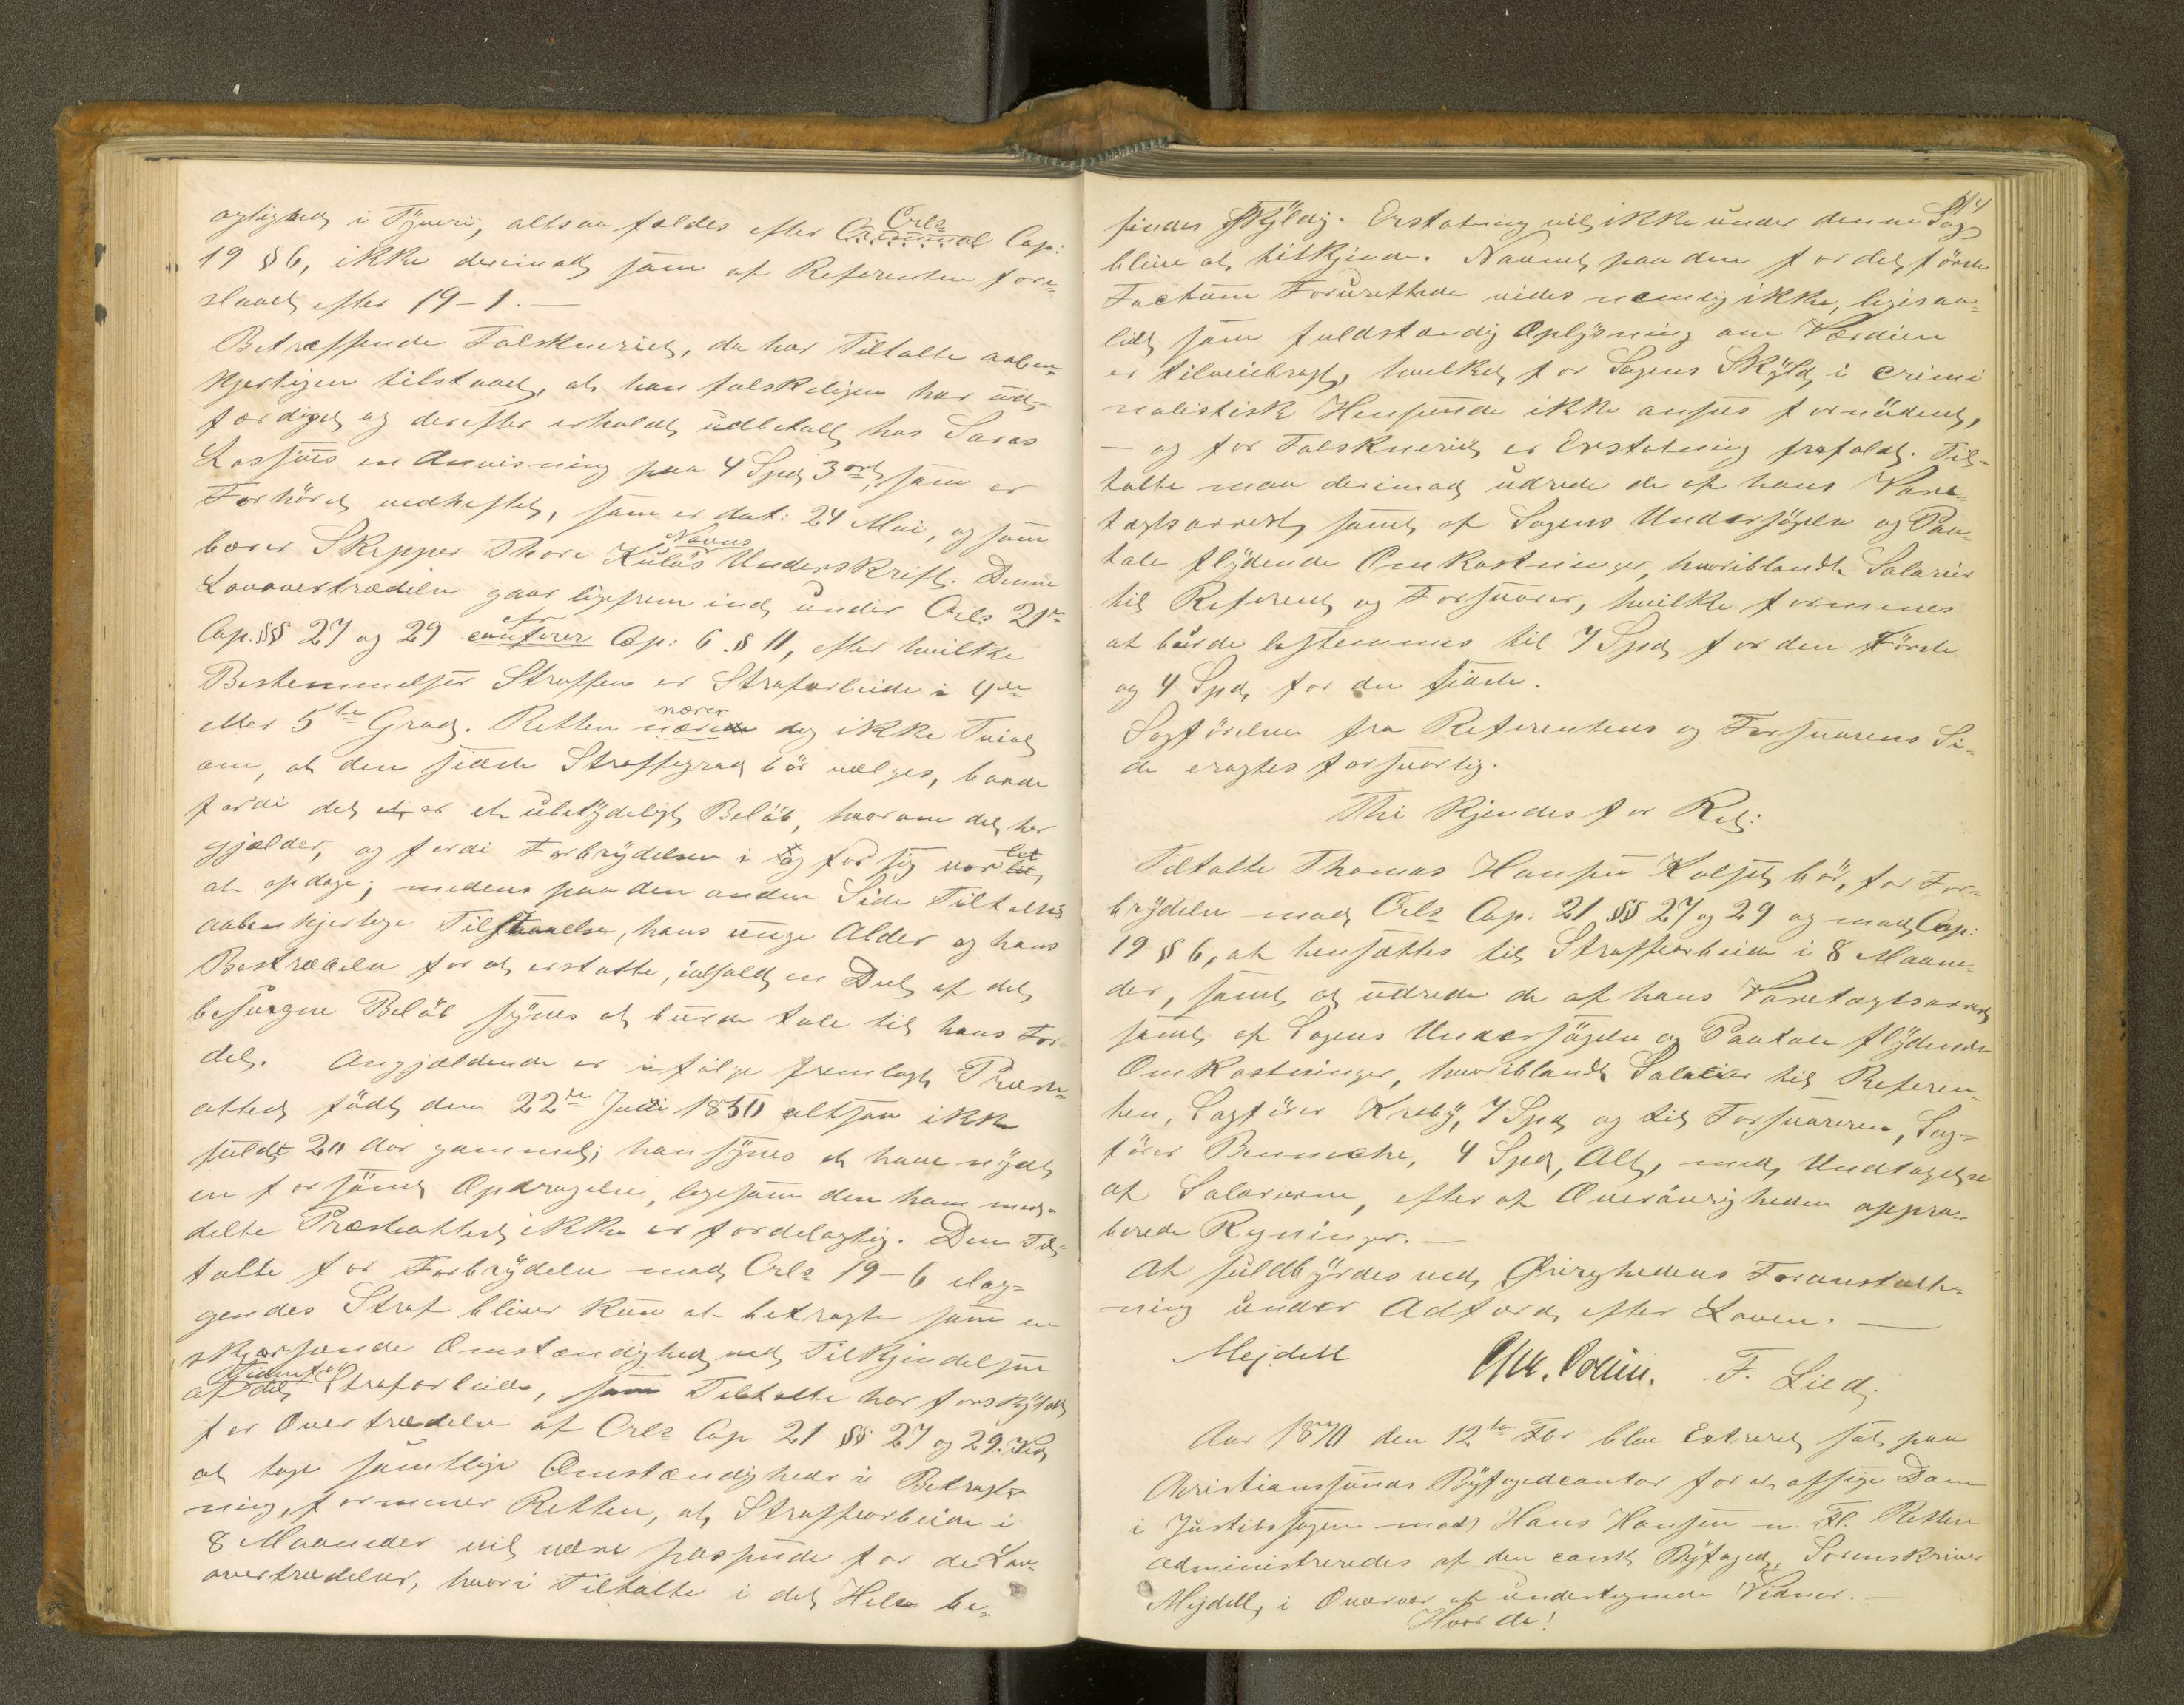 agtighed i Tyveri, altsaa fældes efter Criminal Crls Cap:
19 § 6, ikke derimod som af Referenten fore-
slaaet efter 19-1. —
Betræffende Falskneriet, da har Tiltalte aaben-
hjertigen tilstaaet, at han falskeligen har ud-
færdiget og derefter erholdt udbetalt hos Saras
Lossius en Anvisning paa 4 Spd 3 ort, som er
Forhöret vedheftet, som er dat: 24 Mai, og som
bærer Skipper Thore Kulös Navns Underskrift. Denne
Lovovertrædelse gaar ligefrem ind under Crls 21de
Cap. §§ 27 og 29 conferer cfr Cap: 6 § 11, efter hvilke
Bestemmelser Straffen er Strafarbeide i 4de
eller 5te Grad. Retten nærer nærer dog ikke Tvivl
om, at den sidste Straffegrad bör vælges, baade
fordi det er et ubetydeligt Belöb, hvorom det her
gjælder, og fordi Forbrydelsen i og for sig var let
at opdage; medens paa den anden Side Tiltaltes
aabenhjertige Tilstaaelse, hans unge Alder og hans
Bestræbelse for at erstatte, ialfald en Deel af det
besvegne Belöb synes at burde tale til hans For-
del. Angjældende er ifölge fremlagt Præste-
attest födt den 22de Juli 1850 altsaa ikke
fuldt 20 Aar gammel; han synes at have nydt
en forsömt Opdragelse, ligesom den ham med-
delte Præsteattest ikke er fordelagtig. Den Til-
talte for Forbrydelse mod Crls 19-6 ilæg-
gendes Straf bliver kun at betragte som en
skjærpende Omstændighed ved Tilkjendelsen
af det Strafarbeide, som Tiltalte har forskyldt
for Overtrædelse af Crls Cap 21 §§ 27 og 29. Ved
at tage samtlige Omstændigheder i Betragt-
ning, formener Retten, at Straffearbeide i
8 Maaneder vil være passende for de Lov-
overtrædelser, hvori Tiltalte i det Hele be-
114
findes skyldig. Erstatning vil ikke under denne Sag
blive at tilkjende. Navnet paa den for det förste
Factum Forurettede vides nemlig ikke, ligesaa-
lidt som fuldstændig Oplysning om Værdien
er tilveiebragt, hvilket for Sagens Skyld i crimi
nalistisk Henseende ikke ansees fornödent,
— og for Falskneriet er Erstatning frafaldt. Til-
talte maa derimod udrede de af hans Vare-
tægtsarrest samt af Sagens Undersögelse og Paa-
tale flydende Omkostninger, hvoriblandt Salarier
til Referent og Forsvarer, hvilke formenes
at burde bestemmes til 7 Spd for den Förste
og 4 Spd, for den sidste.
Sagförelsen fra Referentens og Forsvarerens Si-
de eragtes forsvarlig.
Thi kjendes for Ret:
Tiltalte Thomas Hansen Kalset bör, for For-
brydelse mod Crls Cap. 21 §§ 27 og 29 og mod Cap:
19 § 6, at hensættes til Straffearbeide i 8 Maane-
der, samt at udrede de af hans Varetægtsarrest
samt af Sagens Undersögelse og Paatale flydende
Omkostninger, hvoriblandt Salarier til Referen-
ten, Sagförer Kreby, 7 Spd, og til Forsvareren, Sag-
förer Bennche, 4 Spd, Alt, med Undtagelse
af Salarierne, efter af Överövrigheden appro-
berede Regninger. —
At fuldbyrdes ved Övrighedens Foranstalt-
ning under Adfærd efter Loven. —
Mejdell F. Lied.
Aar 1870 den 12te blev Extraret sat paa
Christianssunds Byfogedcontor for at afsige Dom
i Justitssagen mod Hans Hansen m. Fl. Retten
administreredes af den const Byfoged, Sorenskriver
Mejdell, i Overvær af undertegnede Vidner. —
Hvorda!